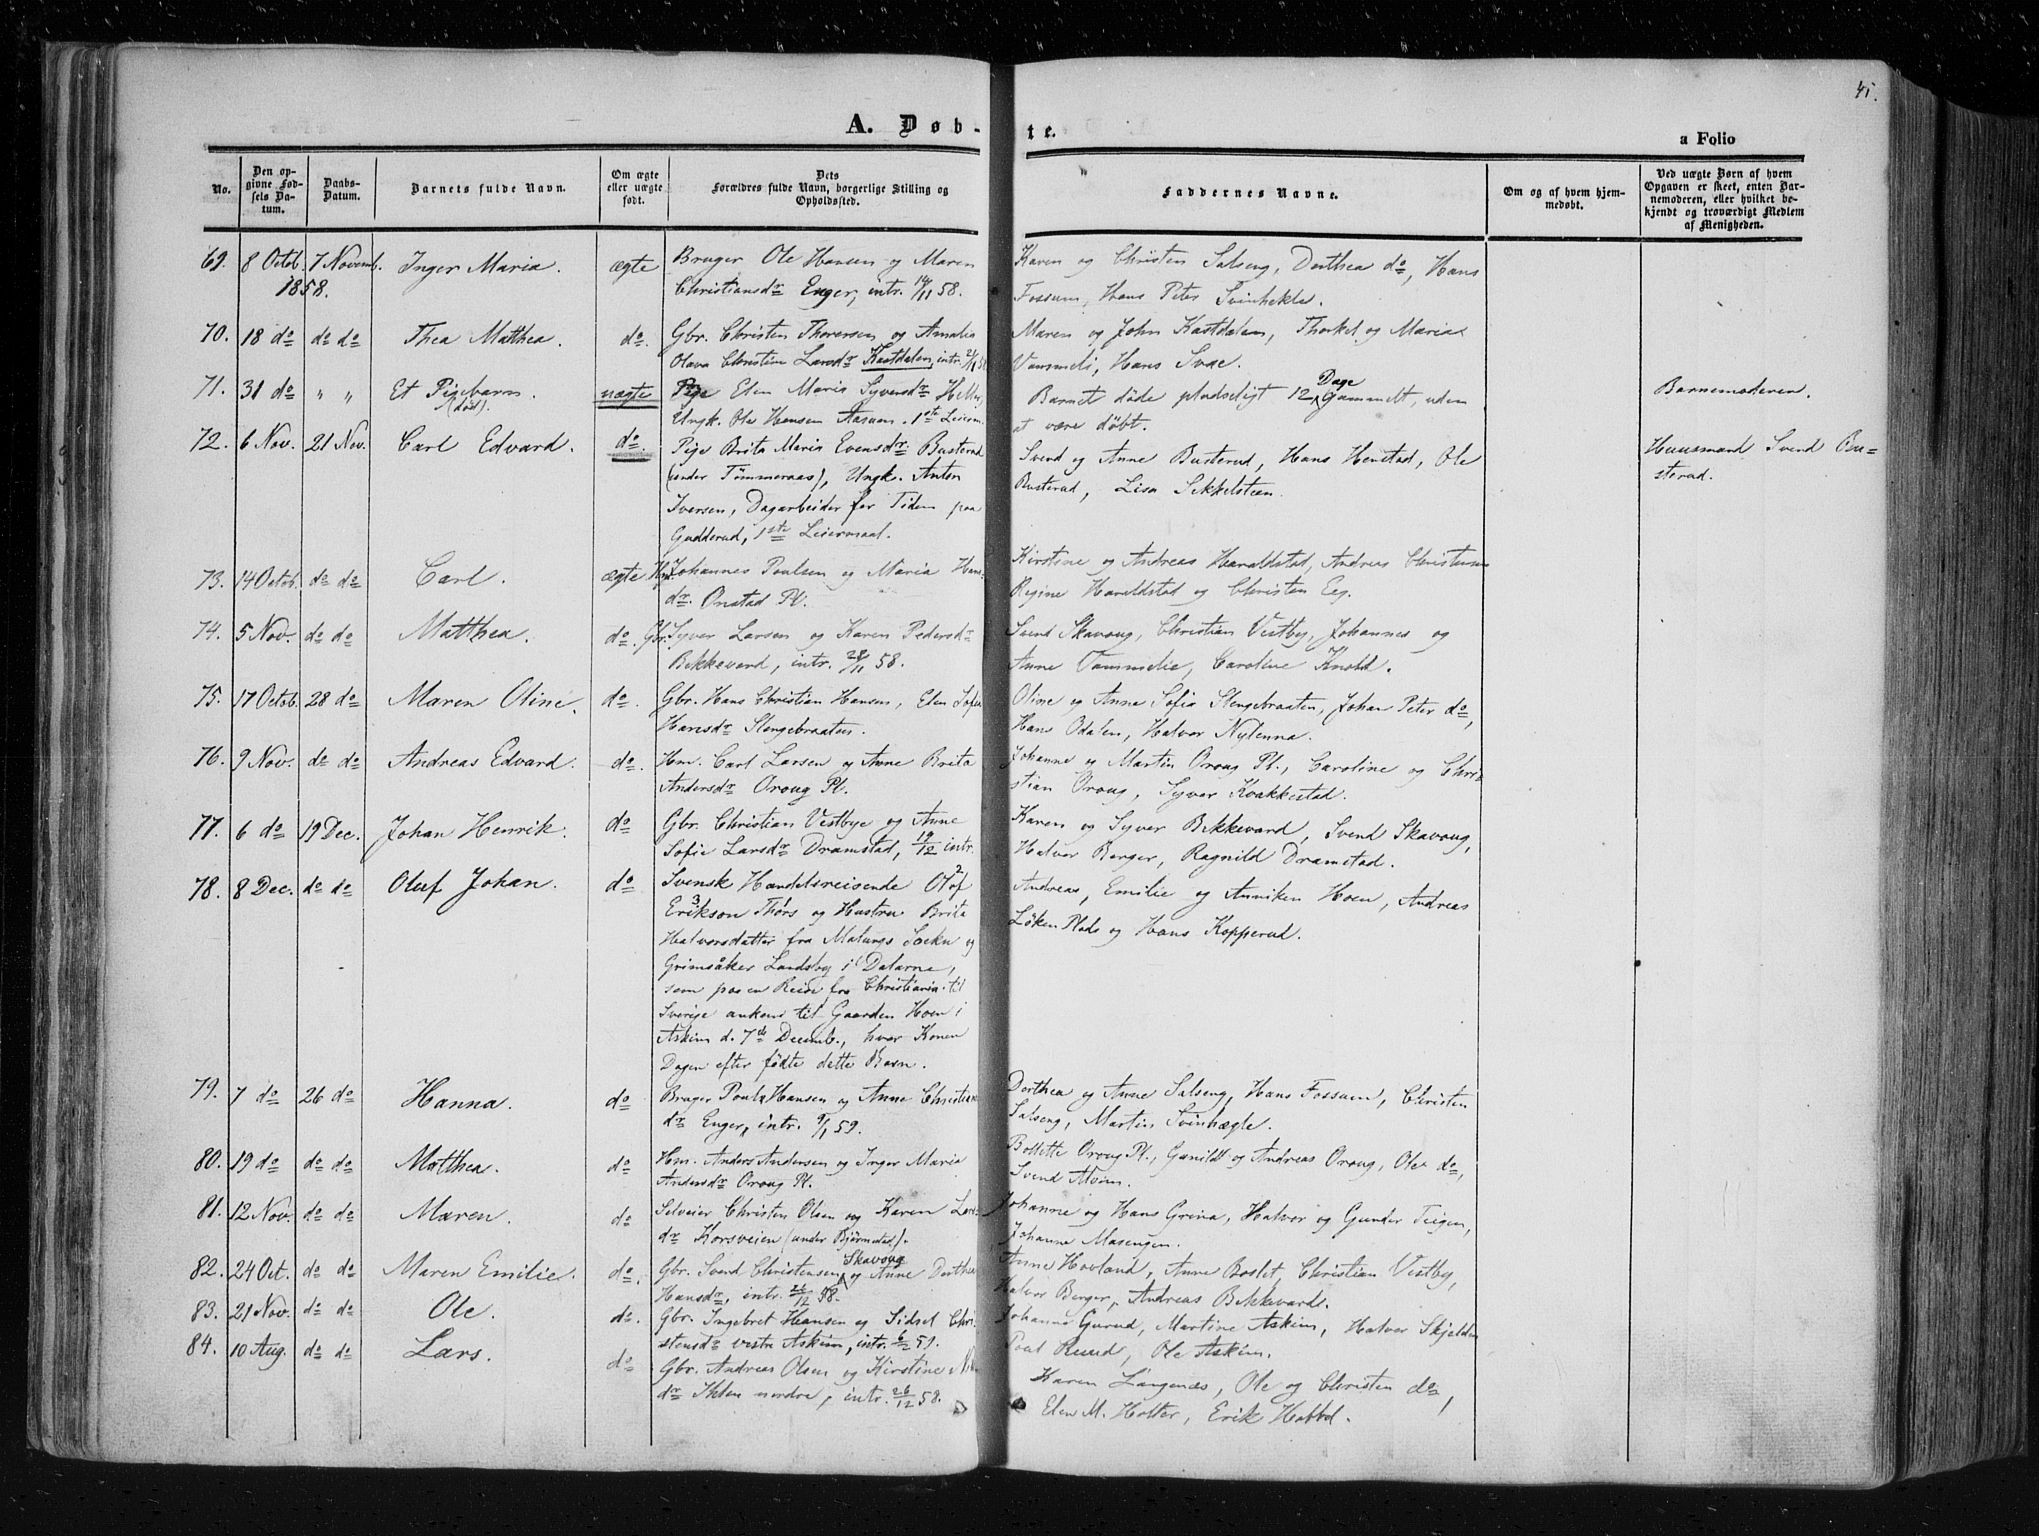 45.
A. Døb-
te.
a Folio
No.
Den op-
givne Fød-
sels Da-
tum.
Daabs-
Datum.
Barnets fulde Navn.
Om ægte
eller uægte
født.
Dets
Forældres fulde Navn, borgerlige Stilling og
Opholdssted.
Faddernes Navne.
Om og af hvem hjem-
medøbt.
Ved uægte Børn af hvem
Opgaven er skeet, enten Bar-
nemoderen, eller hvilket be-
kjendt og troværdigt Medlem
af Menigheden.
69. 8 Octob. 7 Novemb. Inger Maria. ægte Bruger Ole Hansen og Maren
1858. Christiansdr Enger, intr. 14/11 58.
Karen og Christen Salseng, Dorthea do, Hans
Fossum, Hans Peter Svinhekle.
70. 18 do do do Thea Matthea. do. Gbr. Christen Thoresen og Amalia
Olava Christine Larsdr Kastdalen, intr.
Maren og John Kastdalen, Thorkel og Maria
Vammeli, Hans Svae.
71. 31 do " " Et Pigebarn uægte Pige Elen Maria Syversdr
(død). Ungk. Ole Hansen Aasum. 1ste Leierm.
Barnet døde pludseligt 12 Dage Gammelt, uden
at være døbt.
Barnemoderen.
72. 6 Nov. 21 Nov. Carl Edvard. do. Pige Brita Maria Evensdr Busterud
(under Tømmeraas), Ungk. Anton
Iversen, Dagarbeider for Tiden paa
Gudderud, 1ste Leiermaal.
Svend og Anne Busterud, Hans Henstad, Ole
Busterud, Lisa Sekkelsteen.
Huusmand Svend Bu-
sterud.
73. 14 Octob. do do Carl. ægte Hm. Johannes Poulsen og Maria Hans-
dr. Onstad Pl.
Kirstine og Andreas Haraldstad, Andreas Christensen
Regine Haraldstad og Christen Eeg.
74. 5 Nov. do do Matthea. do. Gbr. Syver Larsen og Karen Pedersdr
Bekkevard, intr. 28/11 58.
Svend Skavoug, Christian Vestby, Johannes og
Anne Vammelie, Caroline Knold.
75. 17 Octob. 28 do Maren Oline. do. Gbr. Hans Christian Hansen, Elen Sofie
Hansdr Slengebraaten.
Oline og Anna Sofia Slengebraaten, Johan Peter do,
Hans Odalen, Halvor Nylenna.
76. 9 Nov. do do Andreas Edvard. do. Hm. Carl Larsen og Anne Brita
Andersdr Oroug Pl.
Johanne og Martin Oroug Pl., Caroline og Chri-
stian Oroug, Syver Kvakkestad.
77. 6 do 19 Dec. Johan Henrik. do Gbr. Christian Vestbye og Anne
Sofie Larsdr Dramstad, 19/12 intr.
Karen og Syver Bekkevard, Svend Skavoug,
Halvor Berger, Ragnild Dramstad.
78. 8 Dec. do do Oluf Johan. do Svensk Handelsreisende Olof
Erikson Thors og Hustru Brita
Halvorsdatter fra Malungs Sockn og
Grimsåker Landsby i Dalarne,
som paa en Reise fra Christiania til
Sverige ankom til Gaarden Hoen i
Askim d. 7de Decemb., hvor Konen
Dagen efter fødte dette Barn.
Andreas, Emilie og Anniken Hoen, Andreas
Løken Plads og Hans Kopperud.
79. 7 do 26 do Hanna. do Bruger Poul Hansen og Anne Christians
dr Enger, intr. 9/1 59.
Dorthea og Anne Salseng, Hans Fossum, Christen
Salseng, Martin Svinhægle.
80. 19 do do do Matthea. do Hm. Anders Andersen og Inger Maria
Andersdr Oroug Pl.
Bollette Oroug Pl., Gunild og Andreas Oroug, Ole do,
Svend
81. 12 Nov. do do Maren. do Selveier Christen Olsen og Karen Lars-
dr Korsveien (under Bjørnstad).
Johanne og Hans Grina, Halvor og Gunder Teigen,
Johanne Masengen.
82. 24 Oct. do do Maren Emilie. do. Gbr. Svend Christensen Skavoug og Anne Dorthea
Hansdr, intr. 26/12 58.
Anne Hovland, Anne Boslet, Christian Vestby,
Halvor Berger, Andreas Bekkevard.
83. 21 Nov. do do Ole do. Gbr. Ingebret Hansen og Sidsel Chri-
stensdr vestre Askim, intr. 6/2 59.
Johanne Gurud, Martine Askim, Halvor Skjelden
Poul Ruud, Ole Askim.
84. 10 Aug. do do Lars. do Gbr. Andreas Olsen og Kirstine
dr Ihlen nordre, intr. 26/12 58.
Karen Langenæs, Ole og Christen do,
Elen M. Holter, Erik